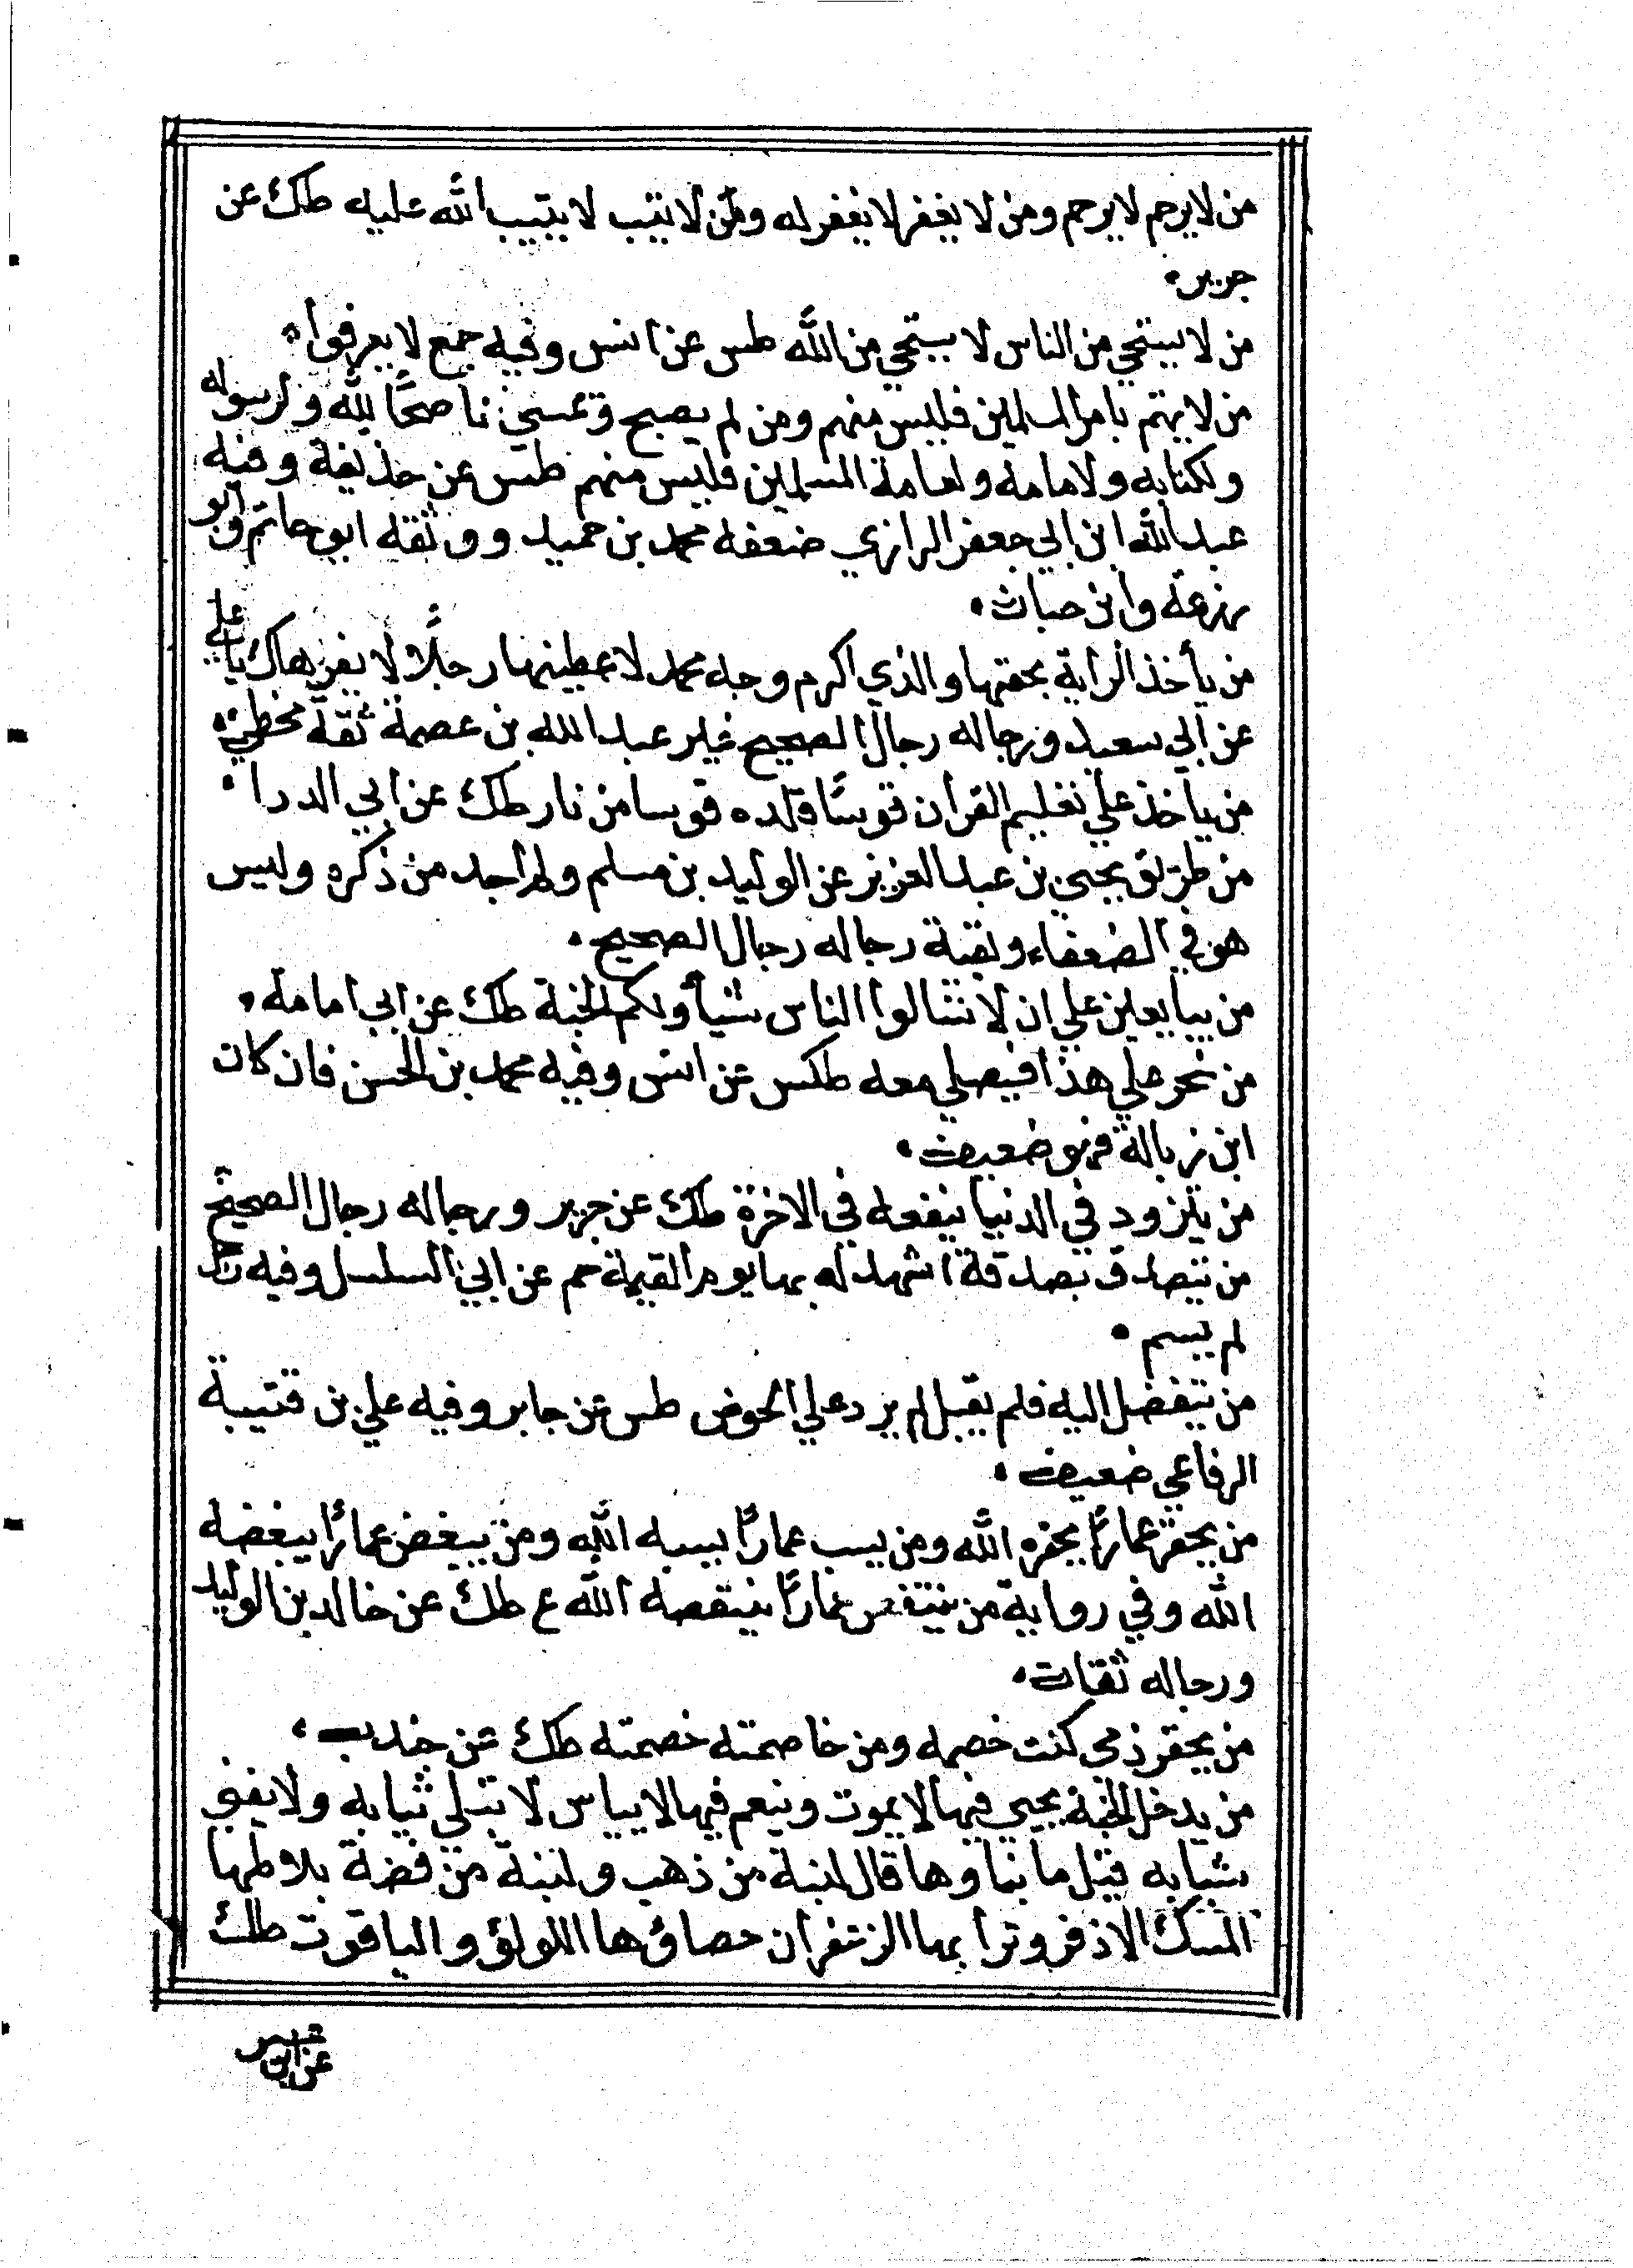 من لا يرحم لا يرحم ومن لا يغفر لا يغفر له ومن لا يتب لا يتيب الله عليه طك عن
جرير.
من لا يستحي من الناس لا يستحي من الله طس عن انس وفيه جمع لا يعرفوا.
من لا يهتم بامر المسلمين فليس منهم ومن لم يصبح ويمسي ناصحًا لله ولرسوله
ولكتابه ولامامه ولعامة المسلمين فليس منهم طس عن حذيفة وفيه
عبد الله ابن ابي جعفر الرازي ضعفه محمد بن حميد ووثقه ابو حاتم وابو
زرعة وابن حبان.
من يأخذ الراية بحقها والذي اكرم وجه محمد لاعطينها رجلًا لا يفر هاك يا علي
عن ابي سعيد ورجاله رجال الصحيح غير عبد الله بن عصمة ثقة يخطئ.
من يأخذ علي تعليم القرآن قوسًا قلده قوسا من نار طك عن ابي الدردا.
من طريق يحيي بن عبد العزيز عن الوليد بن مسلم ولم اجد من ذكره وليس
هو في الضعفاء وبقية رجاله رجال الصحيح.
من يبايعني علي ان لا تسالوا الناس شيأ ولكم الجنة طك عن ابي امامة.
من يتجر علي هذا فيصلي معه طكس عن انس وفيه محمد بن الحسن فان كان
ابن زبالة فهو ضعيف.
من يتزود في الدنيا ينفعه في الاخرة طك عن جرير ورجاله رجال الصحيح
من يتصدق بصدقة اشهد له بها يوم القيمة حم عن ابي السلسل وفيه رجل
لم يسم.
من يتفضل اليه فلم يقبل لم يرد علي الحوض طس عن جابر وفيه علي بن قتيبة
الرفاعي ضعيف.
من يحقر عمارًا يحقره الله ومن يسب عمارًا يسبه الله ومن يبغض عمارًا يبغضه
الله وفي رواية من ينتقص عمارًا ينتقصه الله ع طك عن خالد بن الوليد
ورجاله ثقات.
من يحقر ذمى كنت خصمه ومن خاصمته خصمته طك عن جندب.
من يدخل الجنة يحيي فيها لا يموت وينعم فيها لا يباس لا تبلي ثيابه ولا يفني
شبابه قيل ما بناوها قال لبنة من ذهب ولبنة من فضة بلاطها
المسك الاذفر وترابها الزعفران حصاؤها اللولؤ والياقوت طك
عن ابن